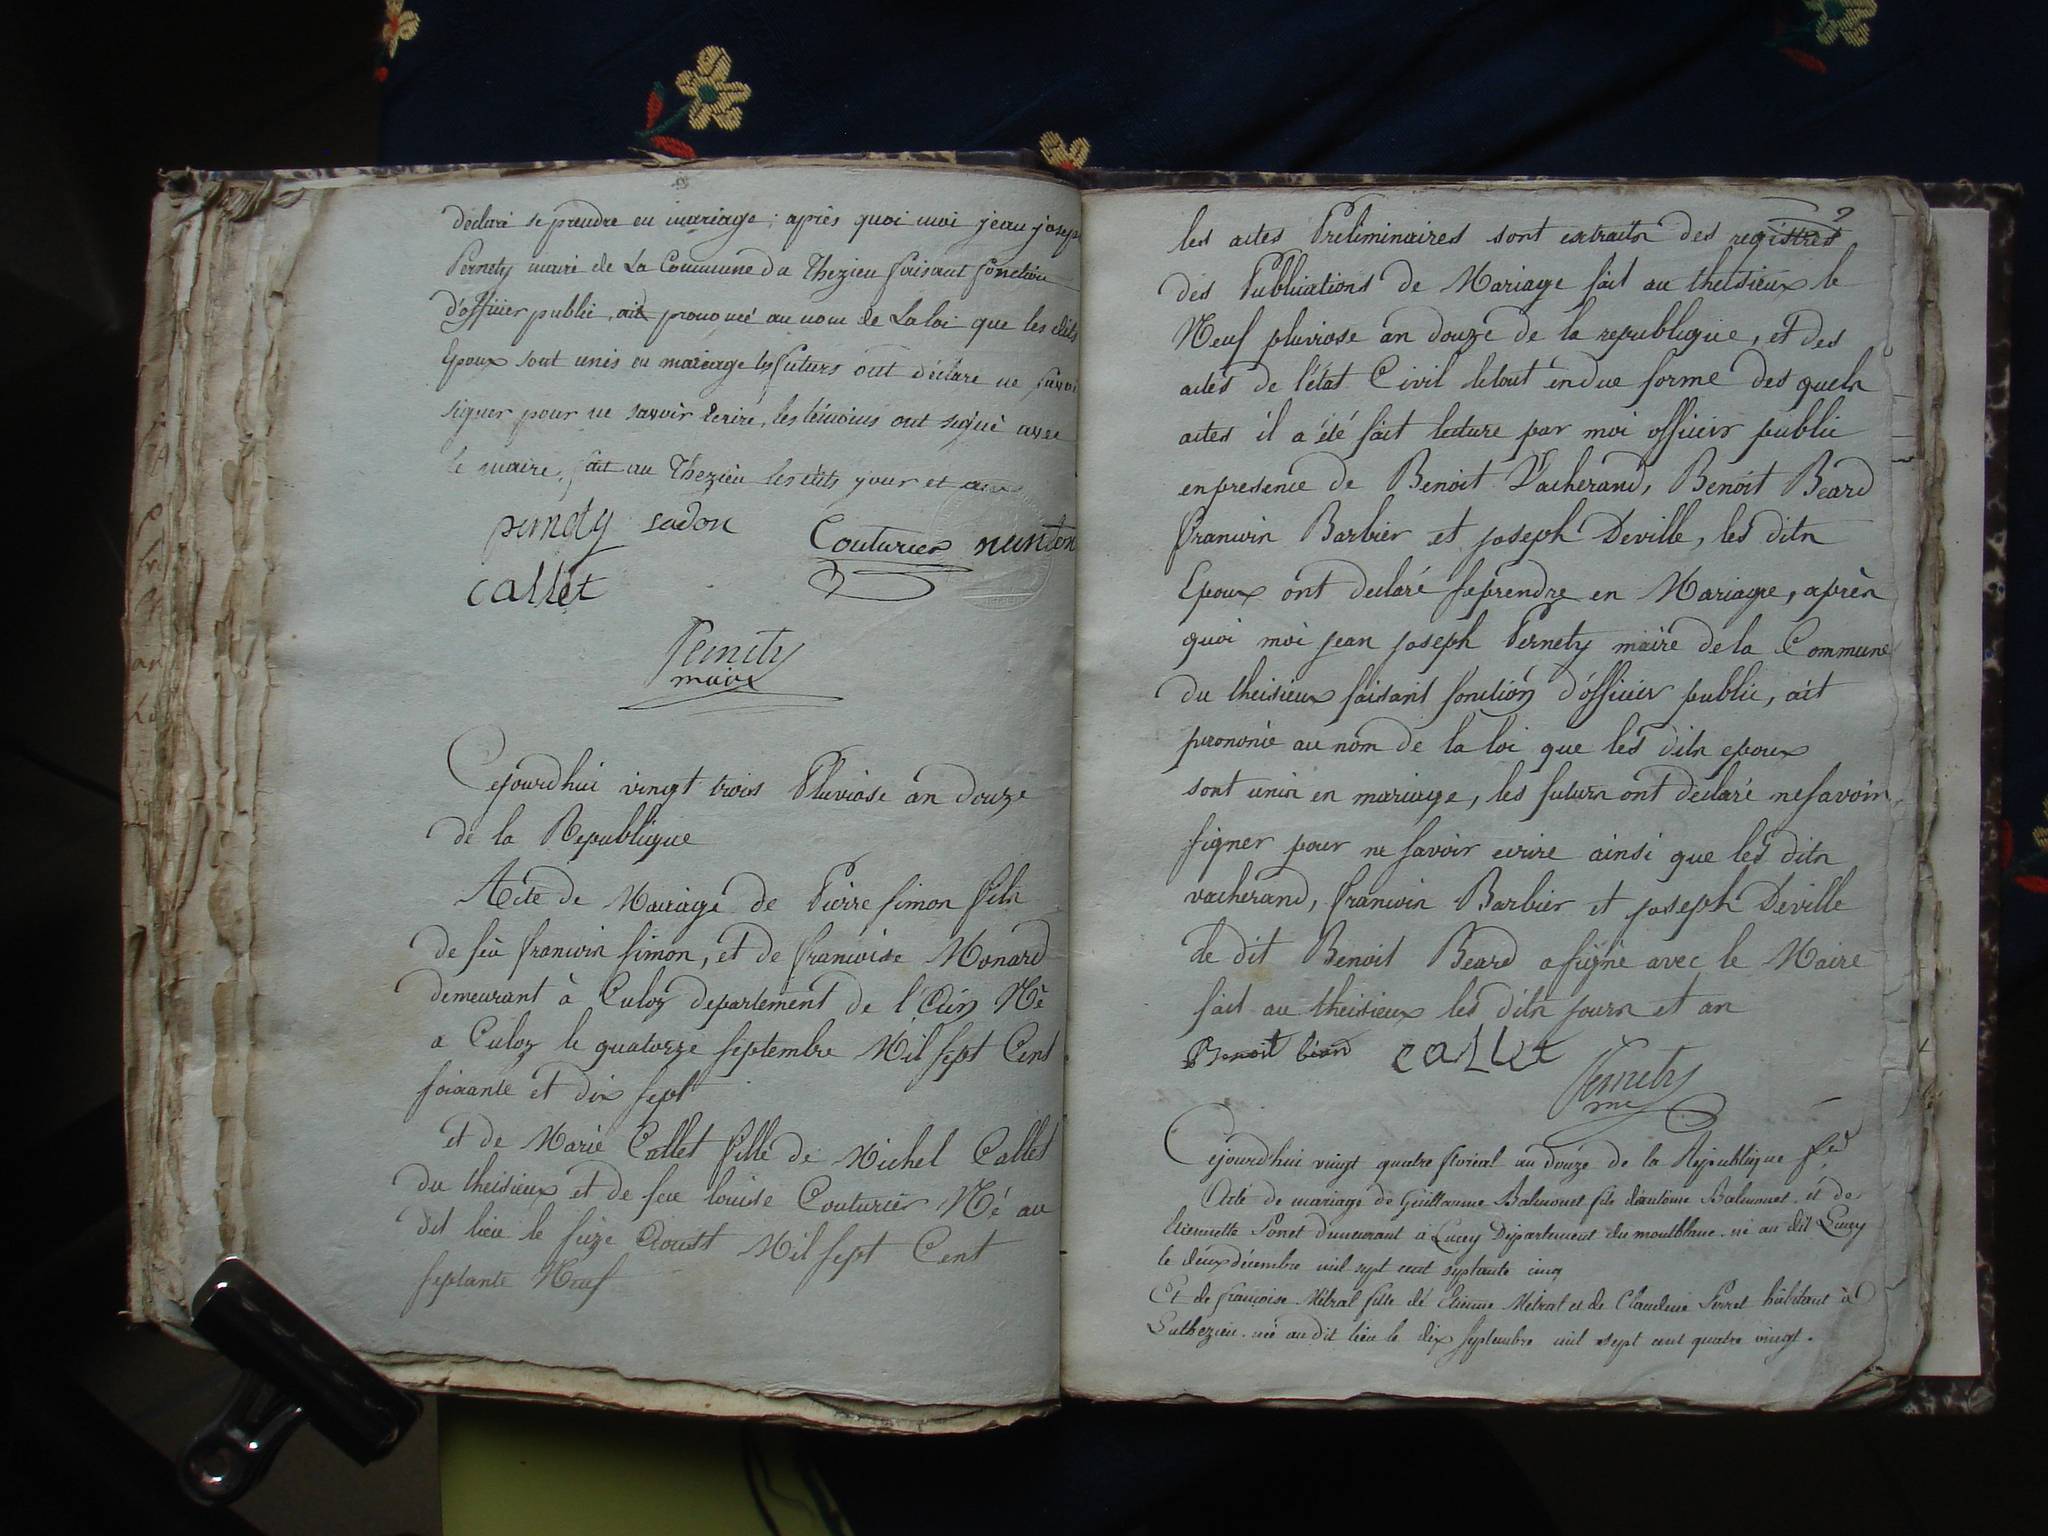 declaré se prendre en mariage; après quoi moi jean joseph
Pernety maire de La Commune du Thezieu faisant fonction
d'officier public, ait prononcé au nom de La loi que les dits
Epoux sont unis en mariage les futurs ont déclaré ne savoir
signer pour ne savoir ecrire, les témoins ont signé avec
le maire, fait au Thezieu les dits jour et an
pernety sadou Couturier
callet
Pernety
maire
Cejourdhui vingt trois Pluviose an douze
de la Republique
Acte de Mariage de Pierre simon fils
de feu francois simon, et de francoise Monard
demeurant à Culoz departement de l'Ain Né
a Culoz le quatorze septembre Mil sept Cent
soixante et dix sept
et de Marie Callet fille de Michel Callet
du theisieux et de feue louise Couturier Né au
dit lieu le seize Aoust Mil sept Cent
septante Neuf
les actes Preliminaires sont extraits des registres
des Publications de Mariage fait au theisieux le
Neuf pluviose an douze de la republique, et des
actes de l'état Civil le tout en due forme des quels
actes il a été fait lecture par moi officier public
en presence de Benoit Vacherand, Benoit Beard
francois Barbier et joseph Deville, les dits
Epoux ont declaré se prendre en Mariage, après
quoi moi jean joseph Pernety maire de la Commune
du theisieux faisant fonction d'officier public, ait
prononcé au nom de la loi que les dits epoux
sont unis en mariage, les futurs ont declaré ne savoir
signer pour ne savoir ecrire ainsi que les dits
vacherand, francois Barbier et joseph Deville
le dit Benoit Beard a signé avec le Maire
fait au theisieux les dits jours et an
Benoit béard callet
Pernety
me
Cejourdhui vingt quatre floreal an douze de la République
Acte de mariage de Guillaume Balmonet fils d'antoine Balmonet et de
Etiennette Porret demeurant à Lucey Département du montblanc né au dit Lucey
le deux décembre mil sept cent septante cinq
Et de françoise Métral fille de Etienne Métral et de Claudine Perret habitant à
Authezieu née au dit lieu le dix septembre mil sept cent quatre vingt.